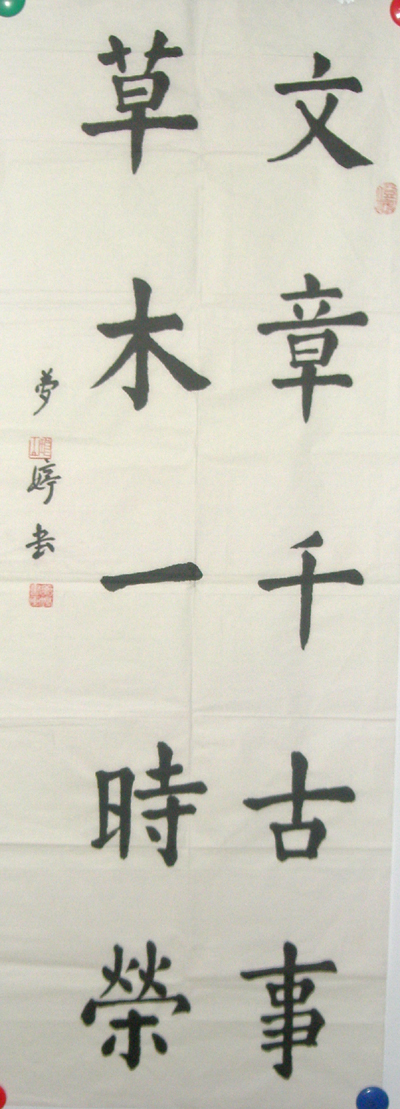 文章千古事
草木一時榮
夢婷书